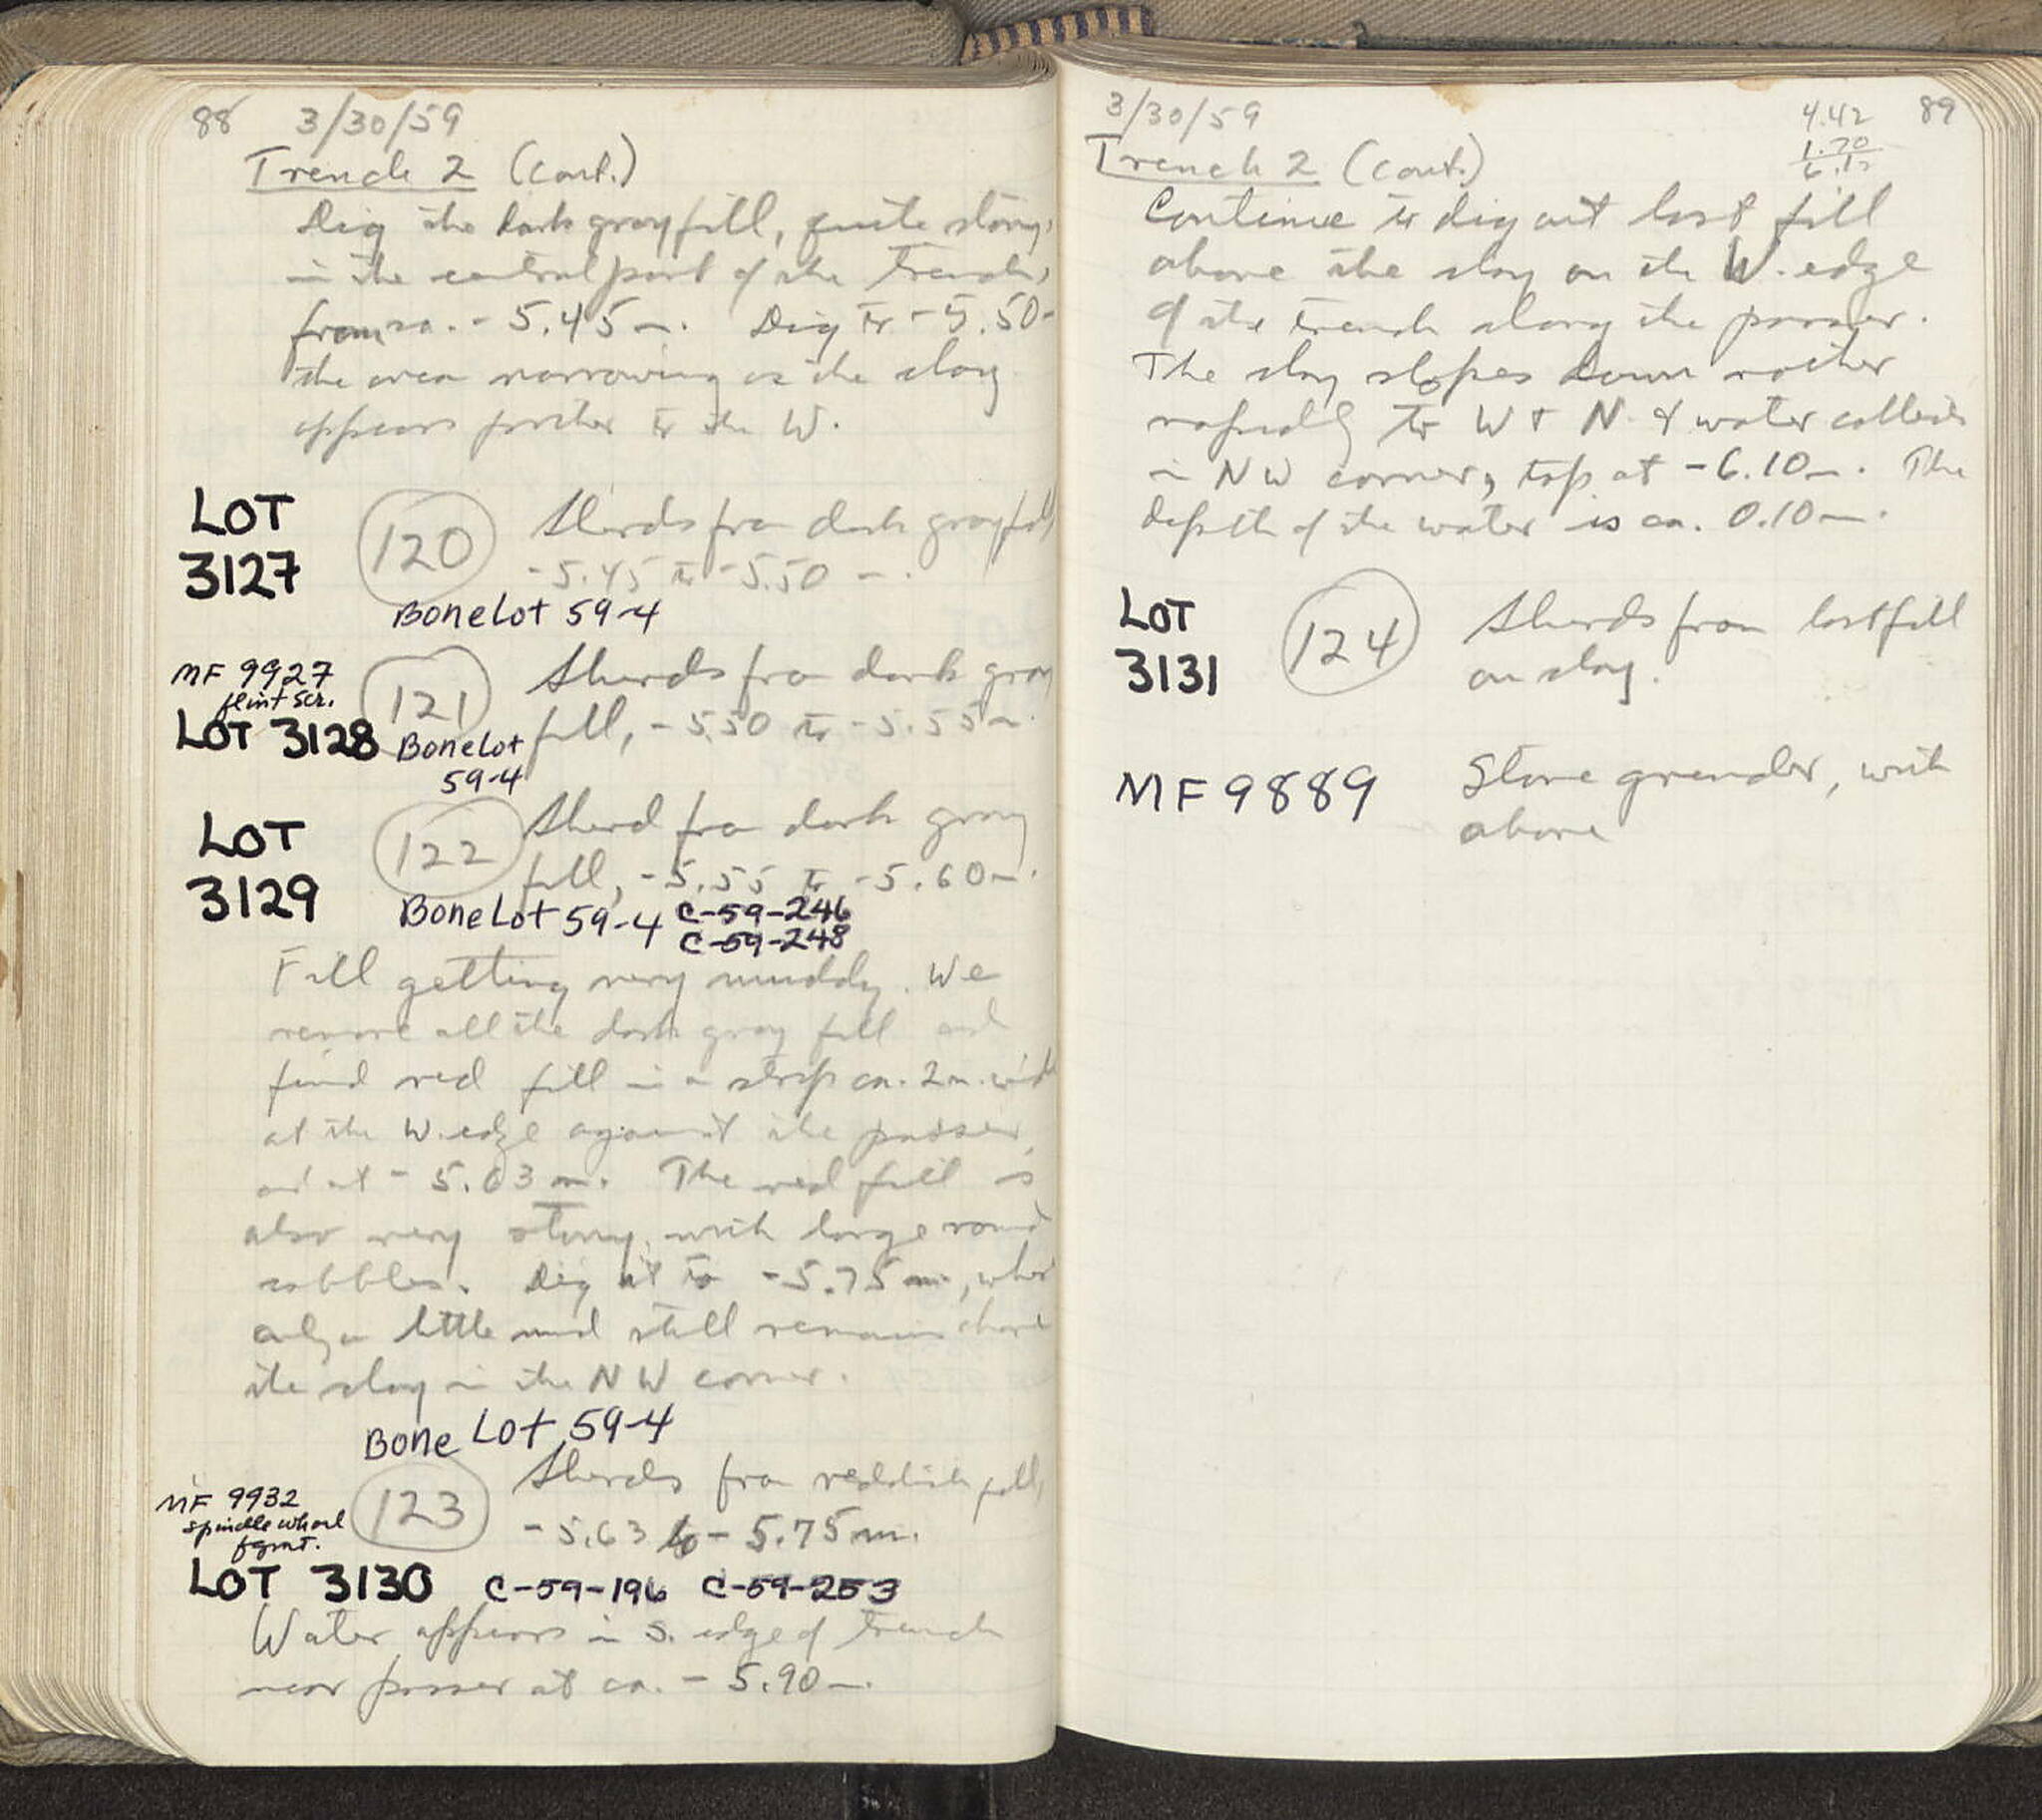 88 3/30/59
Trench 2 (cont.)
Dig the dark gray fill, quite stony,
in the central part of the trench,
from ca. - 5.45 m. Dig to - 5.50
the area narrowing as the clay
appears further to the W.
LOT
3127
120 Sherds from dark gray fill
- 5.45 to - 5.50 m.
Bone Lot 59-4
MF 9927
flint scr.
LOT 3128
121 Sherds from dark gray
fill, - 5.50 to - 5.55 m.
Bone Lot
59-4
LOT
3129
122 Sherd from dark gray
fill, - 5.55 to - 5.60 m.
Bone Lot 59-4 C-59-246
C-59-248
Fill getting very muddy. We
remove all the dark gray fill and
find red fill in a strip ca. 2 m. wide
at the W. edge against the
at - 5.63 m. The red fill is
also very stony, with large round
cobbles. Dig it to - 5.75 m, where
only a little mud still remains above
the clay in the NW corner.
Bone Lot 59-4
MF 9932
spindle whorl
fgmt.
123 Sherds from reddish fill,
- 5.63 to - 5.75 m.
LOT 3130 C-59-196 C-59-253
Water appears in S. edge of trench
near at ca. - 5.90 m.
3/30/59 89
4.42
1.70
6.12
Trench 2 (cont.)
Continue to dig out last fill
above the clay on the W. edge
of the trench along the
The clay slopes down rather
rapidly to W + N. & water collects
in NW corner, top at - 6.10 m. The
depth of the water is ca. 0.10 m.
LOT
3131
124 Sherds from last fill
on clay.
MF 9889 Stone grinder, with
above